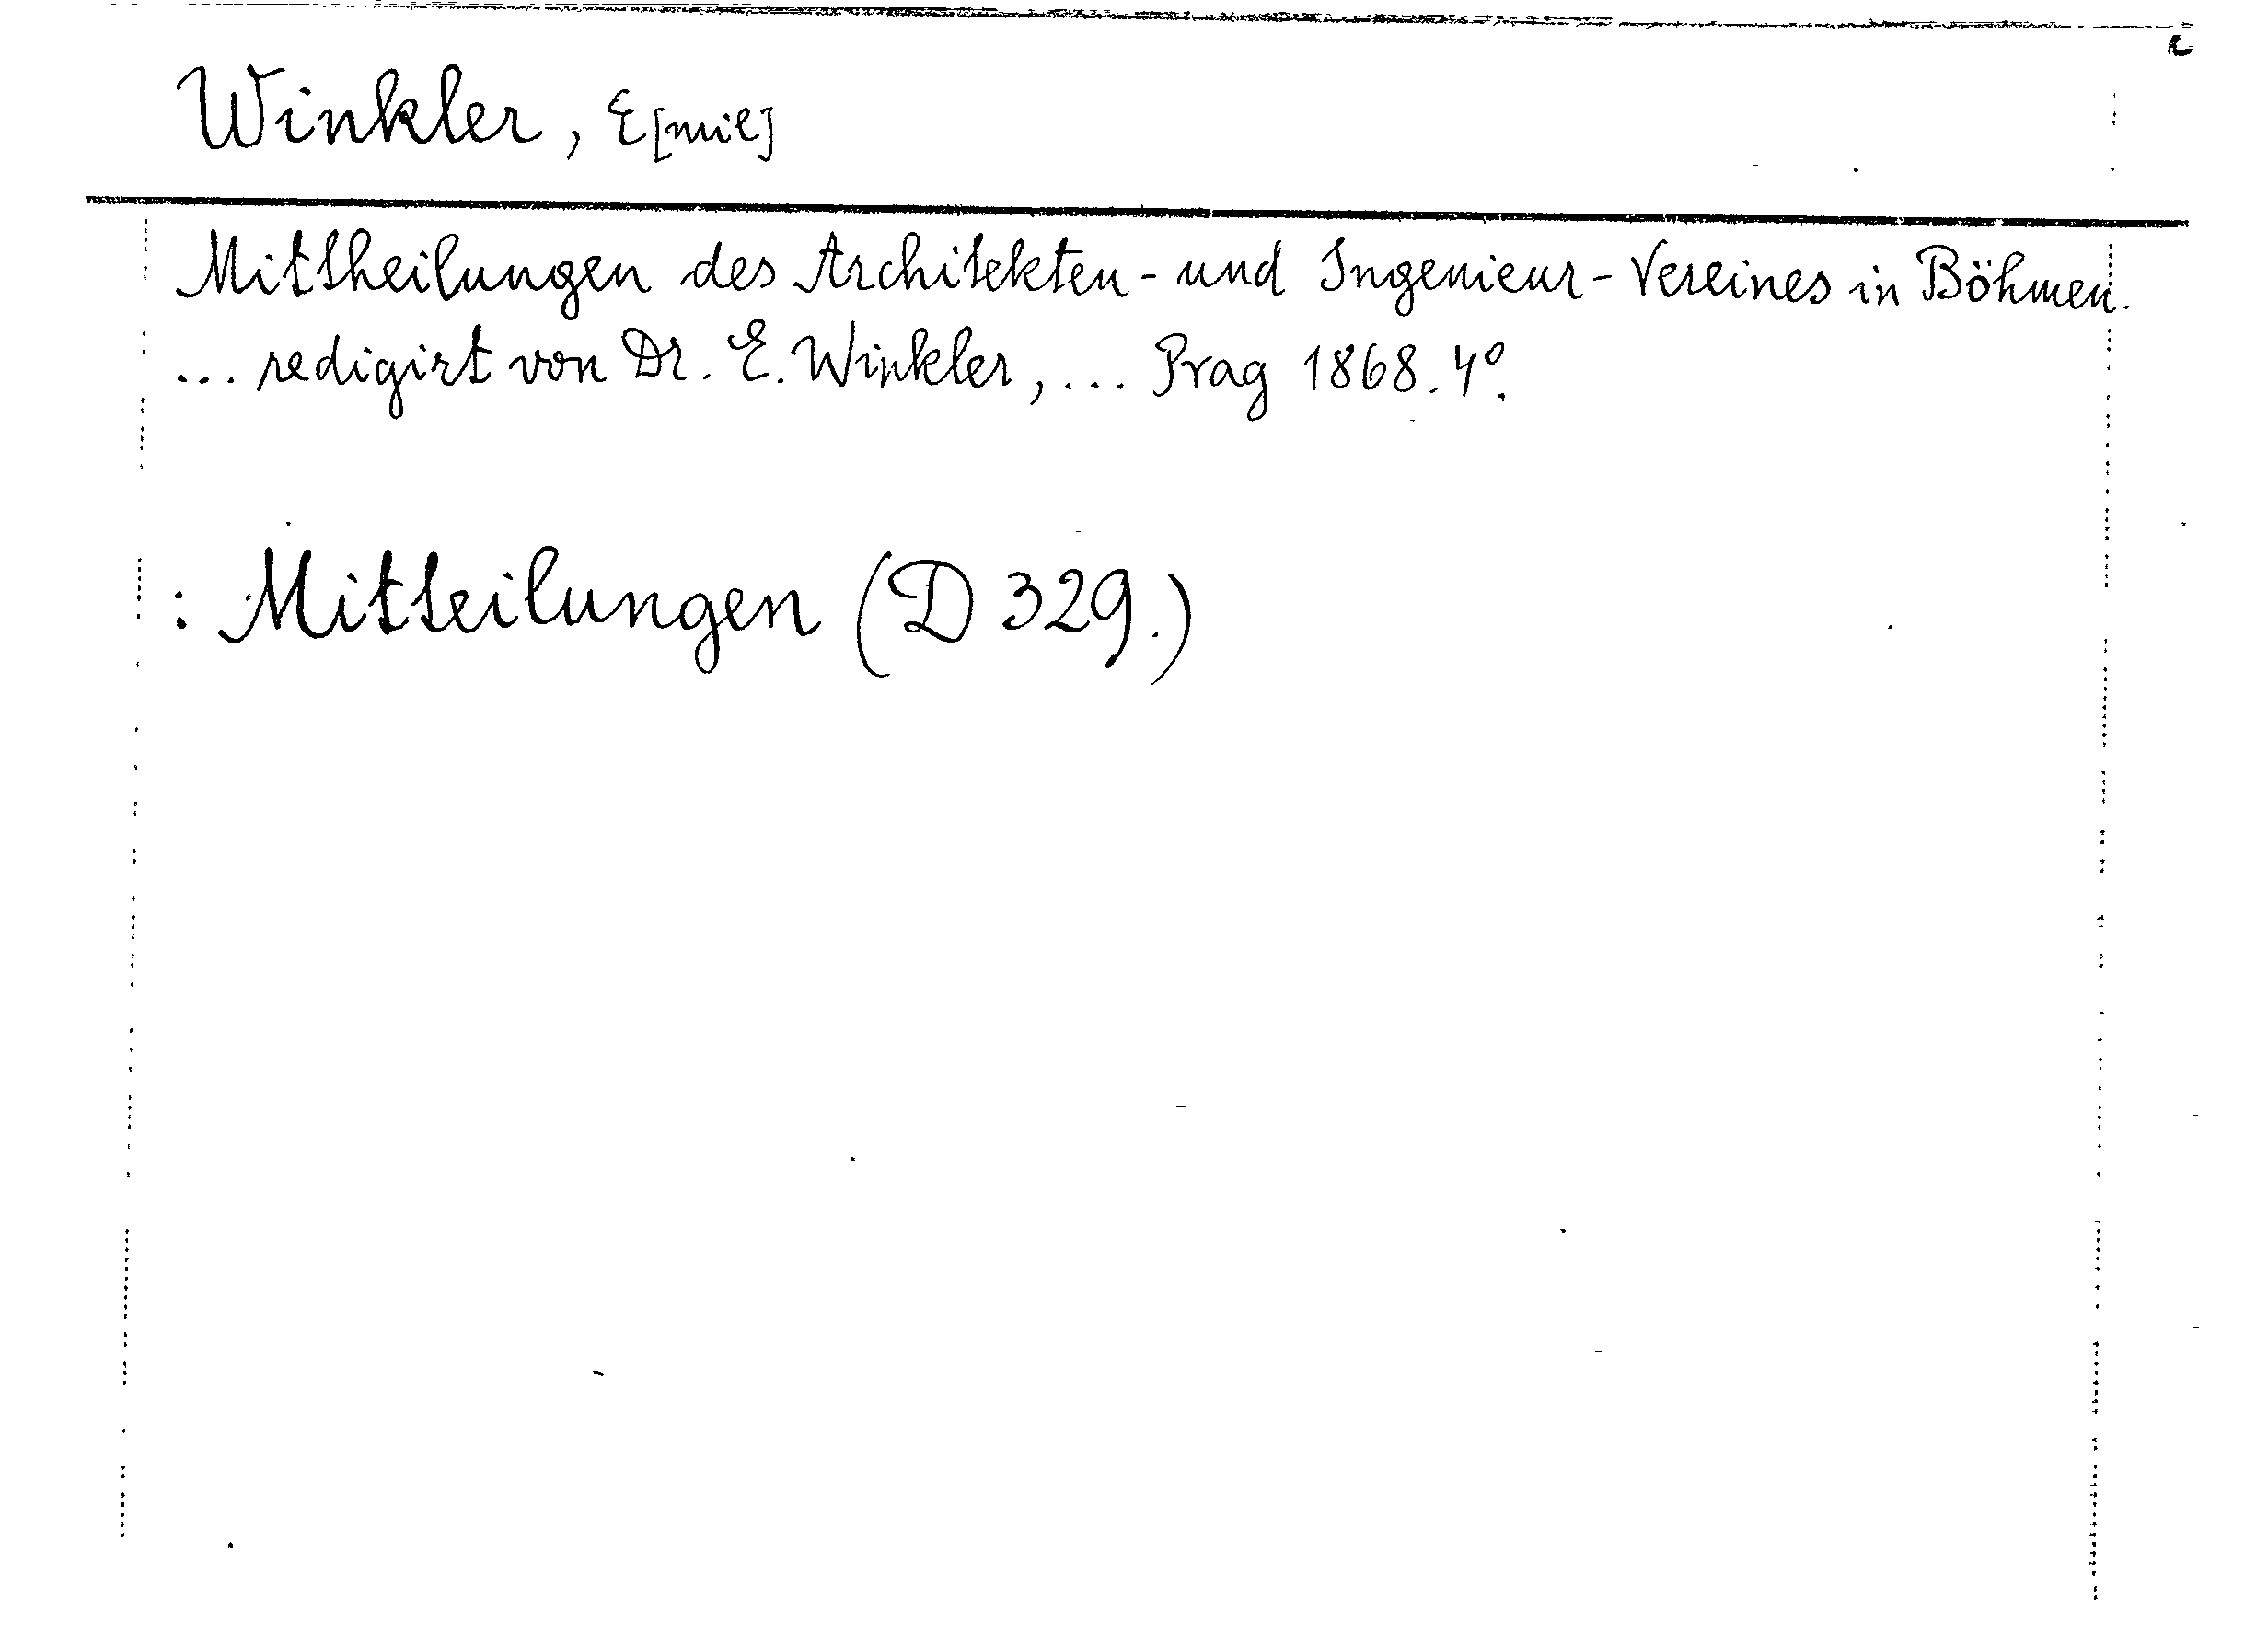 Winkler, E[mil]
Mittheilungen des Architekten- und Ingenieur-Vereines in Böhmen.
... redigirt von Dr. E. Winkler, ... Prag 1868. 4°.
: Mitteilungen (D 329.)